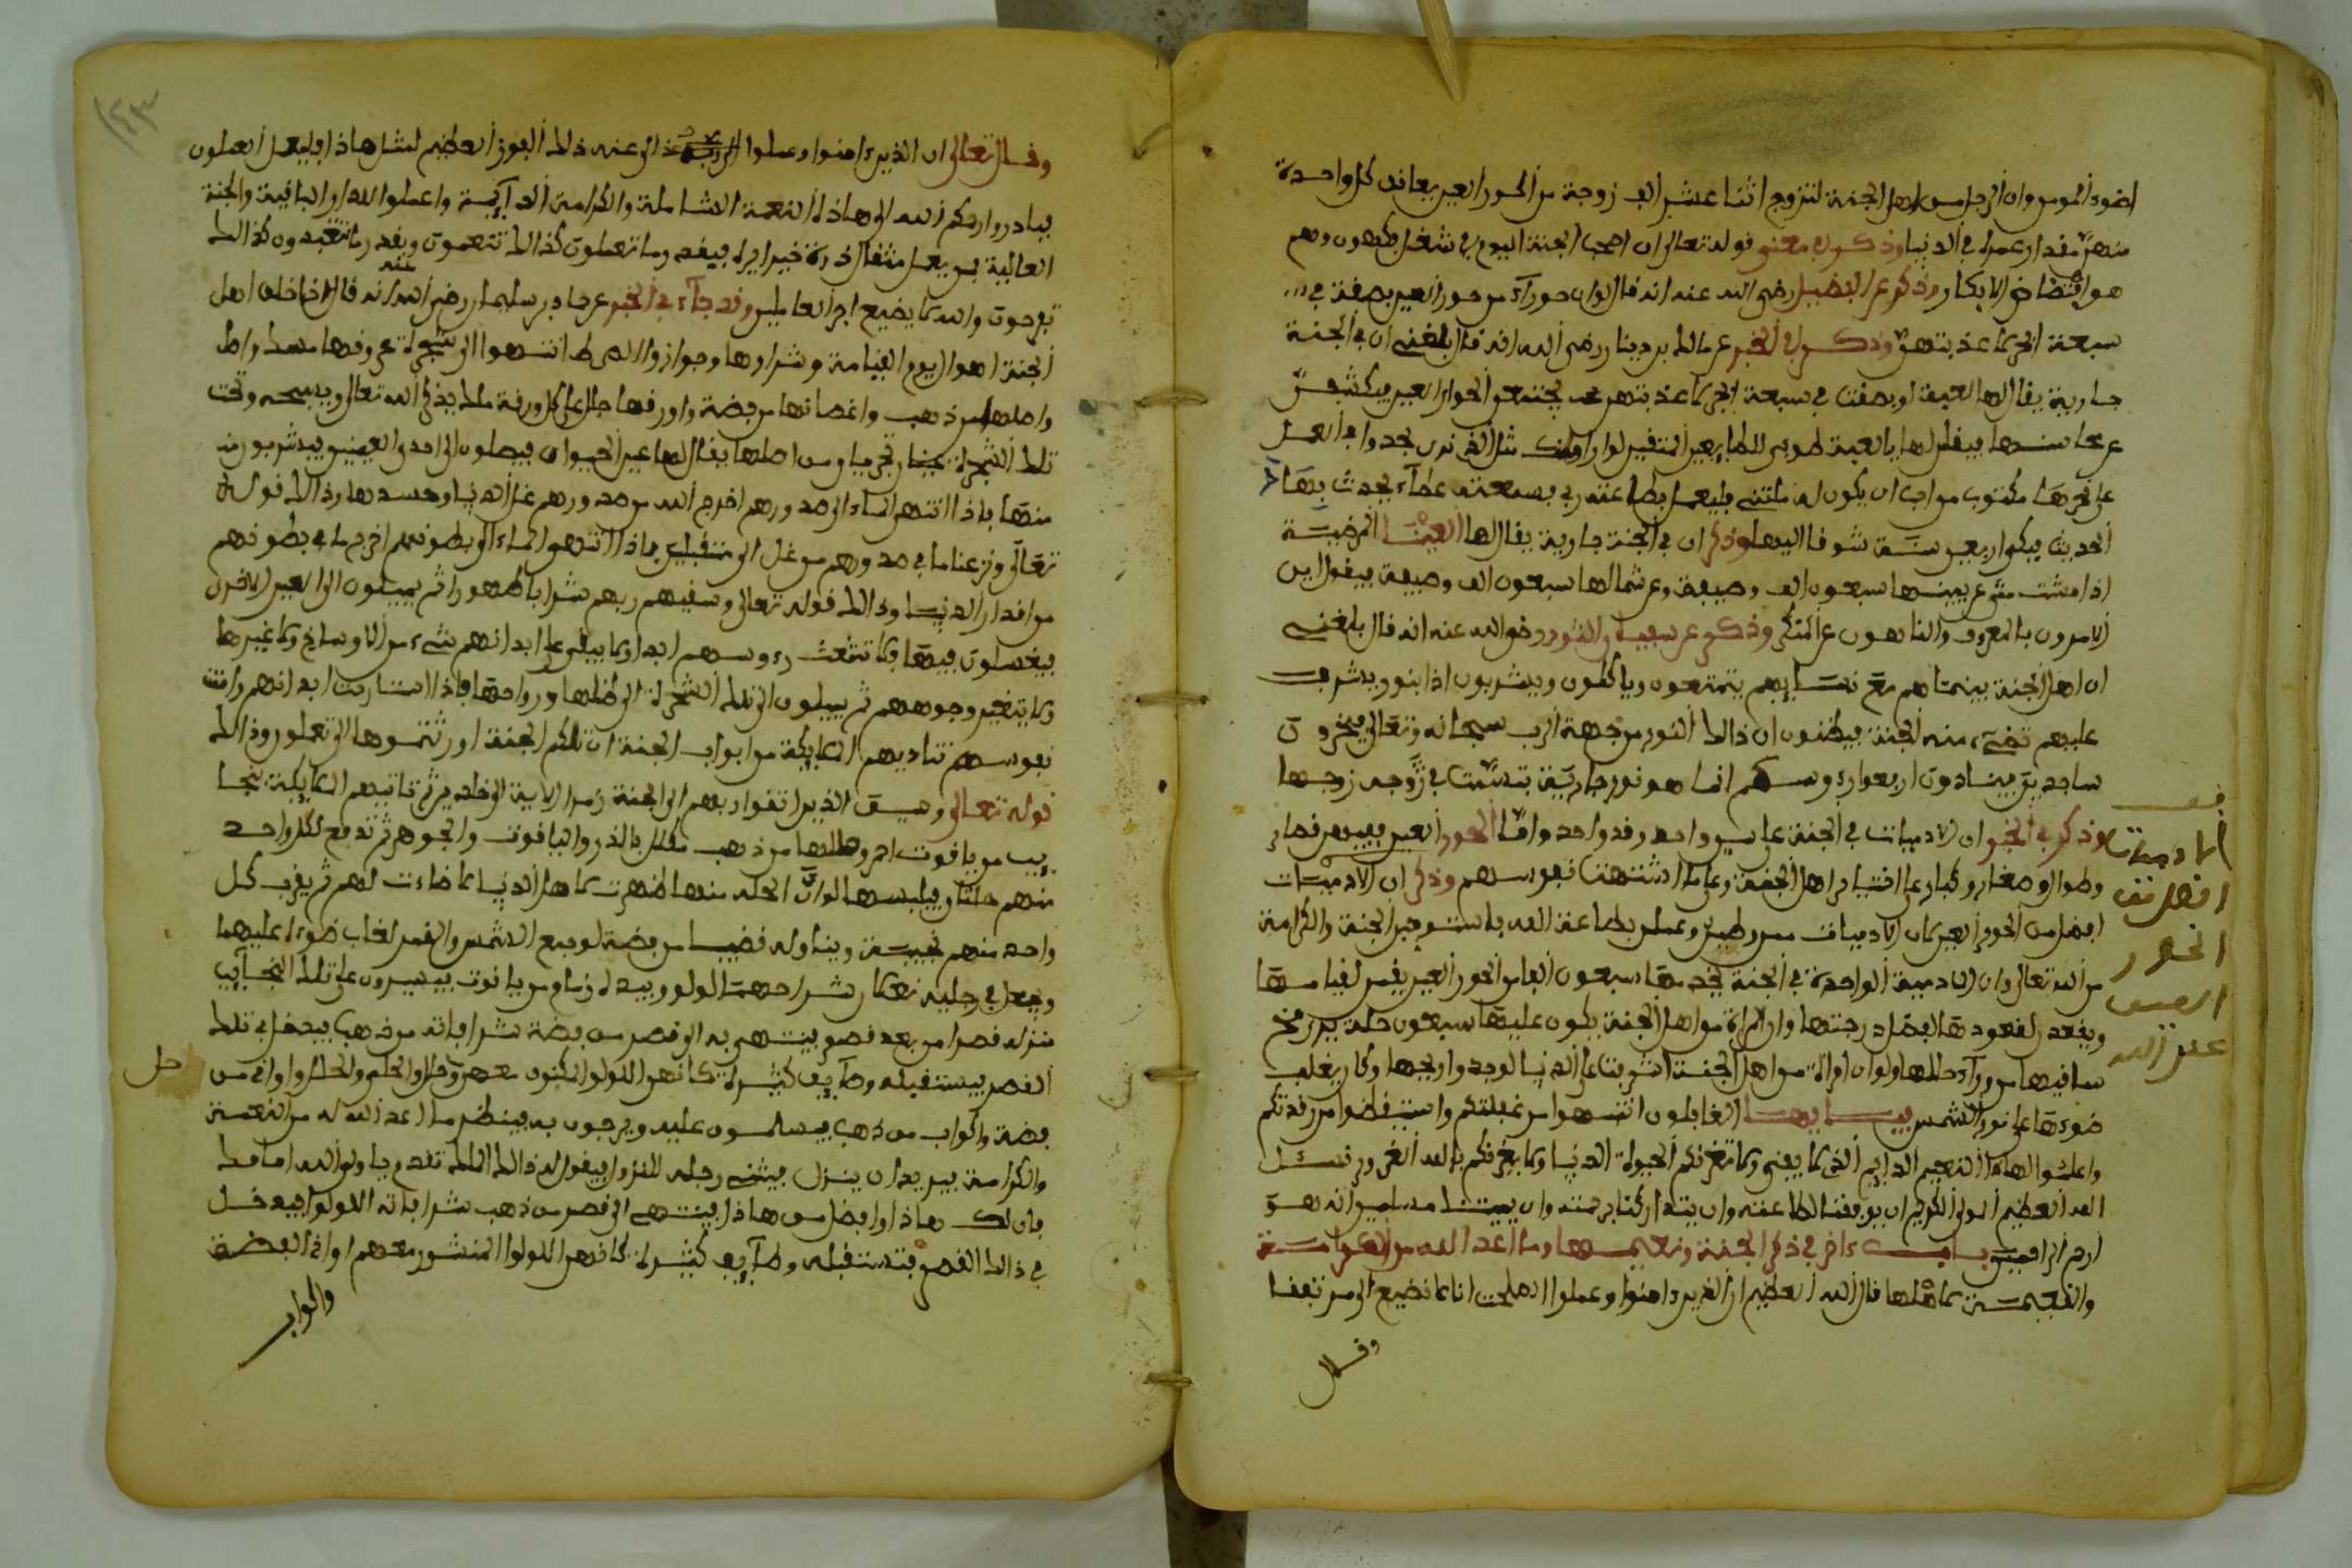 لضوء المومن وان الرجل من اهل الجنة لتزوج اثنا عشر الف زوجة من الحور العين يعانق كل واحدة
منهن مقدار عمره في الدنيا وذكر في معنى قوله تعالى ان اصحب الجنة اليوم في شغل فكهون وهم
هو افتضاض الابكار وذكر عن الفضيل رضي الله عنه انه قال لو ان حوراء من حور العين بصقت في
سبعة ابحر لاعذبتهن وذكر في الخبر عن مالك بن دينار رضي الله انه قال بلغني ان في الجنة
جارية يقال لها العيفة لو بصقت في سبعة ابحر لاعذبتهن يجتمعن الحوار العين
عن محاسنها فيقلن لها يالعيفة طوبى للطالبين المتقين لو اراوك مثل الذي نرى لجدوا في العمل
على نحرها مكتوب من احب ان يكون له مثلي فليعمل بطاعة ربي
الحديث فبكوا اربعين سنة شوقا اليها وذكر ان في الجنة جارية يقال لها العينا المرضية
اذا مشت مشى عن يمينها سبعون الف وصيفة وعن شمالها سبعون الف وصيفة فيقول اين
الامرون بالمعروف والناهون عن المنكر وذكر عن سفيان الثوري رضي الله عنه انه قال بلغني
ان اهل الجنة بينما هم مع نسايهم يتمتعون وياكلون ويشربون اذا بنور يشرف
عليهم تضيء منه الجنة فيظنون ان ذالك النور من جهة الرب سبحانه وتعالى فيخرون
ساجدين فينادون ارفعوا رءوسكم انما هو نور جارية تبسمت في وجه زوجها
وذكر في الخبر ان الادميات في الجنة على سن واحد وقد واحد واما الحور العين فيهن قصار
وطوال وصغار وكبار على اختيار اهل الجنة وعلى ما اشتهت نفوسهم وذكر ان الادميات
افضل من الحور العين لان الادميات صمن وصلين وعملن بطاعة الله فاستوجبن الجنة والكرامة
من الله تعالى وان الادمية الواحدة في الجنة يخدمها سبعون الفا من الحور العين يقمن لقيامها
ويقعدن لقعودها لفضل درجتها وان المراة من اهل الجنة يكون عليها سبعون حلة يرى مخ
ساقيها من وراء حللها ولو ان امراة من اهل الجنة اشرفت على الدنيا لوجدوا ريحها ولكان يغلب
ضوءها على نور الشمس فيا ايها الغافلون انتبهوا من غفلتكم واستيقظوا من رقدتكم
واعلموا لهاذا النعيم الدايم الذي لا يفنى ولا تغرنكم الحيوة الدنيا ولا يغرنكم بالله الغرور نسئل
الله العظيم المولى الكريم ان يوفقنا لطاعته وان يتداركنا برحمته وان يميتنا مسلمين انه هو
ارحم الراحمين باب ءاخر في ذكر الجنة ونعيمها وما اعد الله من الكرامة
والنعيمة لاهلها قال الله العظيم ان الذين ءامنوا وعملوا الصلحت انا لا نضيع الى مرتفقا
وقال
فف
الادميات
افضل من
الحور
العين
عند الله
١٤٣
وقال تعالى ان الذين ءامنوا وعملوا الى عنه ذالك الفوز العظيم لمثل هاذا فليعمل العملون
فبادروا رحمكم الله الى هاذه النعمة الشاملة والكرامة الدايمة واعملوا للدار الباقية والجنة
العالية فمن يعمل مثقال ذرة خيرا يره فبقدر ما تعملون كذالك تتنعمون وبقدر ما تتعبدون كذالك
تفرحون والله لا يضيع اجر العاملين وقد جاء في الخبر عن جابر بن سليمان رضي الله عنه انه قال اذا خلص اهل
الجنة اهوال يوم القيامة وشرارها وجوازوا الصراط انتهوا الى شجرة عروقها مسك
واصلها من ذهب واغصانها من فضة واورقها حلل على كل ورقة ملك يذكر الله تعالى ويسبحه وتحت
تلك الشجرة عينان تجريان من اصلها يقال لها عين الحيوان فيصلون الى احدى العينين فيشربون
منها فاذا انتهى الماء الى صدورهم اخرج الله من صدورهم غل الدنيا وحسدها وذالك قوله
تعالى ونزعنا ما في صدورهم من غل الى متقبلين فاذا انتهى الماء الى بطونهم اخرج ما في بطونهم
من اقذار الدنيا وذالك قوله تعالى وسقيهم ربهم شرابا طهورا ثم يميلون الى العين الاخرى
فيغتسلون فيها فلا تشعث رءوسهم ابدا ولا يبقى على ابدانهم شيء من الاوساخ ولا غيرها
ولا يتغير وجوههم ثم يميلون الى تلك الشجرة الى ظلها ورواحها فاذا استنارت ابدانهم وامنت
نفوسهم تناديهم الملايكة من ابواب الجنة ان تلكم الجنة اورثتموها الى تعملون وذالك
قوله تعالى وسيق الذين اتقوا ربهم الى الجنة زمرا الاية الى خلدين ثم تاتيهم الملايكة بنجا
يب من ياقوت احمر وحللها من ذهب مكلل بالدر والياقوت والجوهر ثم تدفع لكل واحد
منهم حلتان فيلبسها لو ان الحلة منها ظهرت لاهل الدنيا لاضاءت لهم ثم يقرب كل
واحد منهم نجيبة ويناوله قضيبا من فضة لو جمع الشمس والقمر لغاب ضوء عليهما
ويجعل في رجليه نعلان شراكهما لولو وبيده زمام من ياقوت فيسيرون على تلك النجايب
منزله قصرا من بعد قصر فينتهي به الى قصر من فضة شرافاته من ذهب فيدخل في تلك
القصر فيستقبله وصايف كثيرة كانهن اللولو المكنون معهن الحلي والحلل واواني من
فضة واكواب من ذهب فيسلمون عليه ويرحبون به فينظر ما اعد الله له من النعمة
والكرامة فيريد ان ينزل فيثني رجله للنزول فيقول له ذالك الملك تقدم يا ولي الله امامك
فان لك هاذا وافضل من هاذا فينتهي الى قصر من ذهب شرافاته اللولو فيدخل
في ذالك القصر فتستقبله وصايف كثيرة كانهن اللولو المنثور معهم اواني الفضة
حل
واكواب